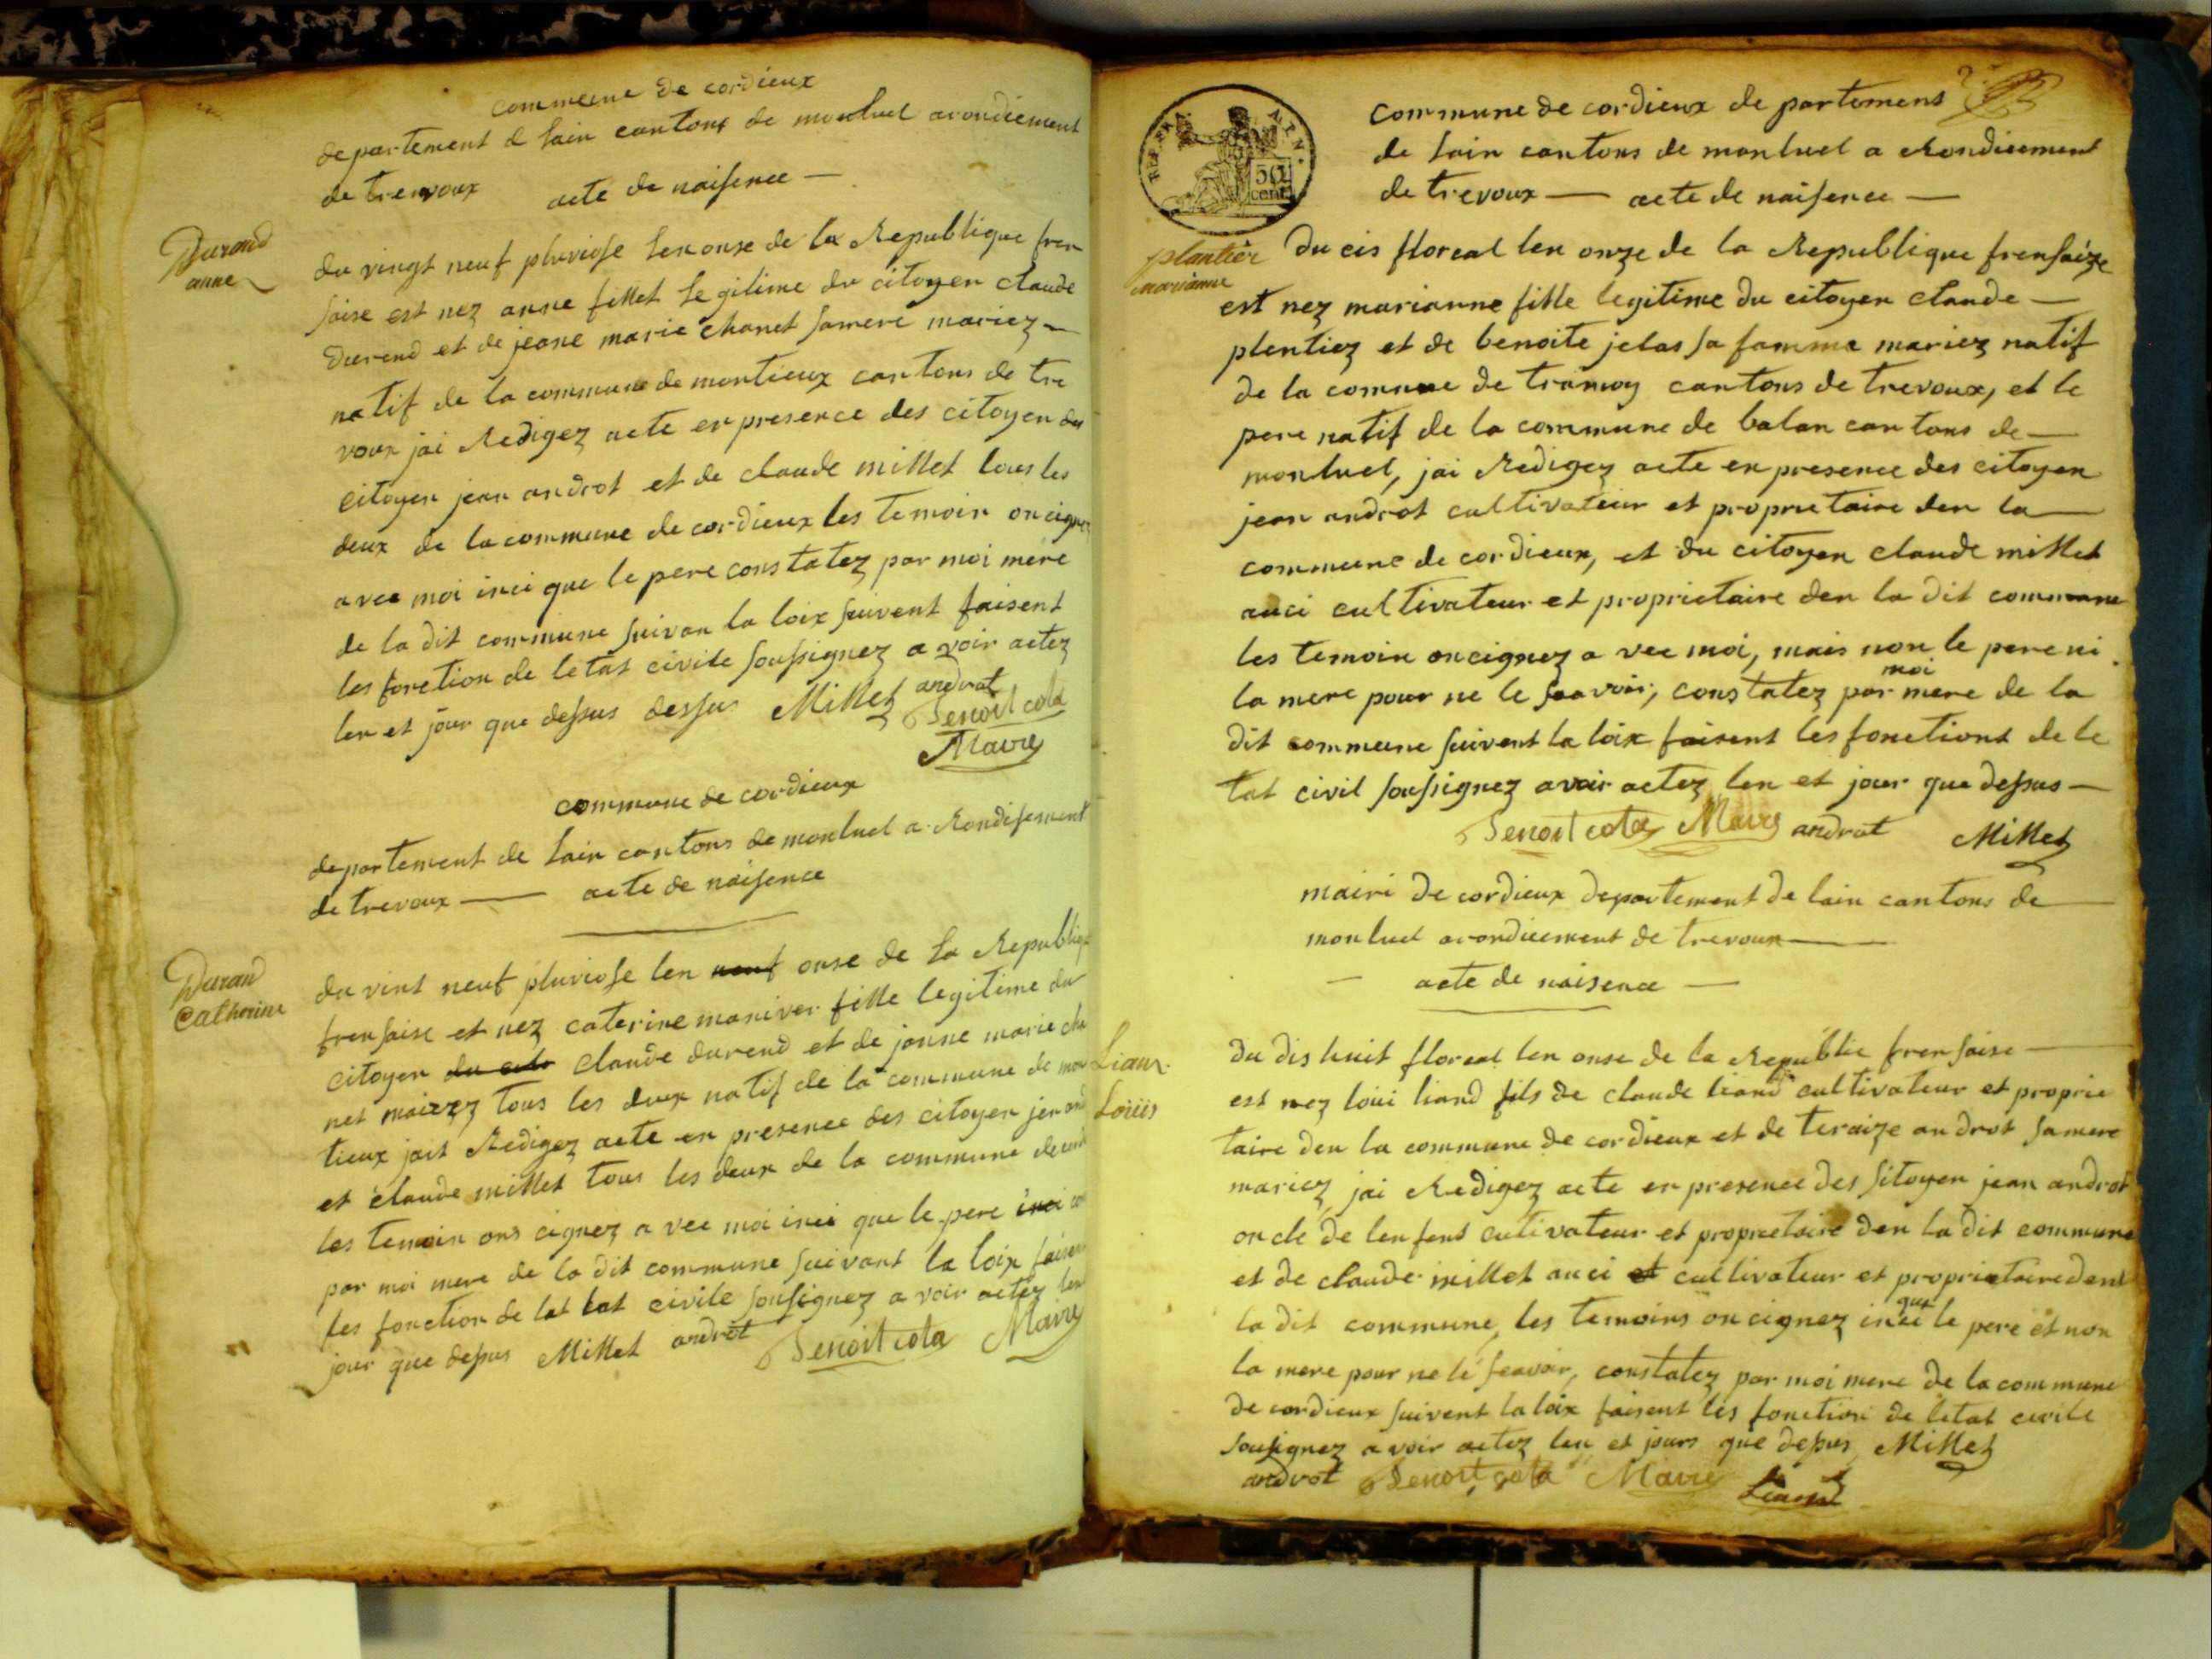 commeune de cordieux
departement d lain cantons de monluel arondicement
de trenvoux acte de naisence
Durand
anne
du vingt neuf pluviose lenonse de la Republique fren
saise est nez anne fillet legitime du citoyen claude
durend et de jeane marie chanet samere mariez
natif de la commune de montieux cantons de tre
voux jai Redigez acte en presence des citoyen du
citoyen jean androt et de claude millet tous les
deux de la commune de cordieux les temoin on cignez
avec moi inci que le pere constatez par moi mere
de la dit commune suivan la loix suivent faisent
les fonction de letat civile soussignez a voir actez
len et jour que dessus dessus Millet androt
Benoit cota
Maire
commune de cordieux
departement de lain cantons de monluel a Rondisement
de trevoux acte de naisence
Durand
Catherine
du vint neuf pluviose len neuf onse de la Republique
frensaise et nez caterine maniver fille legitime du
citoyen claude durend et de janne marie cha
net mairez tous les deux natif de la commune de mon
tieux jait Redigez acte en presence des citoyen jen and
et claude millet tous les deux de la commune de cord
les temoin ons cignez a vec moi inci que le pere inci co
par moi mere de la dit commune suivant la loix faisen
les fonction de lat tat civile sousignez a voir actez len
jour que depus Millet androt Benoit cota Maire
REP. FRA. A.T.N.
50
cent
Commune de cordieux de partement
de lain cantons de monluel a Rondicement
de trevoux acte de naisence
plantier
marianne
Du cis floreal len onze de la Republique frensaize
est nez marianne fille legitime du citoyen claude
plentiez et de benoite jelas sa famme mariez natif
de la comune de tramoy cantons de trevoux, et le
pere natif de la commune de balan cantons de
monluel, jai Redigez acte en presence des citoyen
jean androt cultivateur et proprietaire den la
commeune de cordieux, et du citoyen claude millet
auci cultivateur et proprietaire den la dit commune
les temoin on cignez a vec moi, mais non le pere ni
la mere pour ne le seavoir, constatez par moi mere de la
dit commeune suivent la loix faisent les fonctions de le
tat civil soussignez avoir actez len et jour que dessus
Benoit cota Maire androt Millet
mairi de cordieux departement de lain cantons de
monluel arondicement de trevoux
acte de naisence
Liaur
Loüis
du dis huit floreal len onse de la Republic frensaise
est nez loui liand fils de claude liand cultivateur et proprie
taire den la commune de cordieux et de teraize androt samere
mariez, jai Redigez acte en presence des sitoyen jean androt
oncle de lenfent cutivateur et proprietaire den la dit commune
et de claude millet auci et cultivateur et proprietaire dent
la dit commune, les temoins on cignez inci que le pere et non
la mere pour ne le seavoir, constatez par moi mere de la commune
de cordieux suivent la loix faisent les fonction de letat civile
sousignez a voir actez len et jours que depus Millet
androt Benoit cota Maire